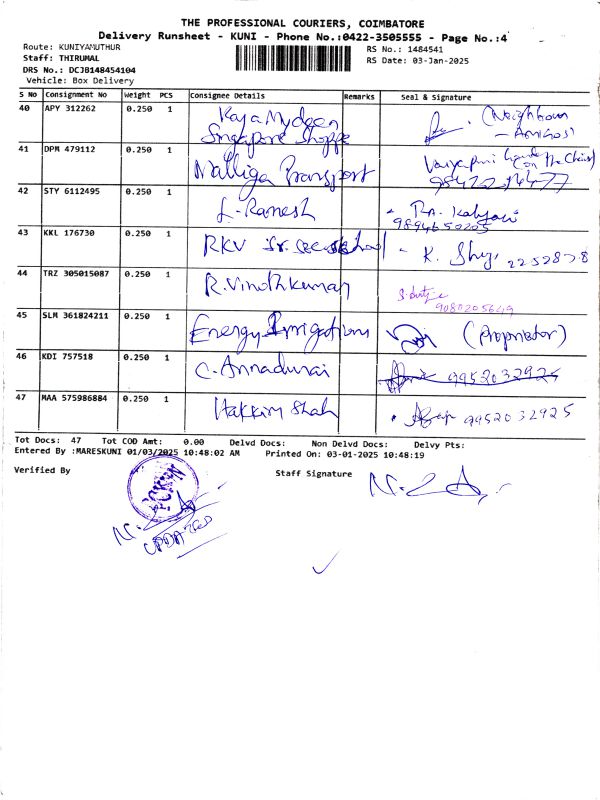 THE PROFESSIONAL COURIERS, COIMBATORE
Delivery Runsheet - KUNI - Phone No.:0422-3505555 - Page No.:4
Route: KUNIYAMUTHUR
RS No.: 1484541
Staff: THIRUMAL
RS Date: 03-Jan-2025
DRS No.: DCJB148454104
Vehicle: Box Delivery
S No Consignment No Weight PCS Consignee Details Remarks Seal & Signature
40 APY 312262 0.250 1 Kaja Mydeen (Neighbour
Singapore Shoppe
41 DPM 479112 0.250 1 Malliga Transport
42 STY 6112495 0.250 1 L. Ramesh
9894650205
43 KKL 176730 0.250 1 RKV Sr. Sec School - K. 2252878
44 TRZ 305015087 0.250 1 R. Vinothkumar
9080205649
45 SLM 361824211 0.250 1 Energy Irrigations (Proprietor)
46 KDI 757518 0.250 1 C. Annadurai 9952032925
47 MAA 575986884 0.250 1 Hakkim Shah 9952032925
Tot Docs: 47 Tot COD Amt: 0.00 Delvd Docs: Non Delvd Docs: Delvy Pts:
Entered By :MARESKUNI 01/03/2025 10:48:02 AM Printed On: 03-01-2025 10:48:19
Verified By Staff Signature
UPDATED